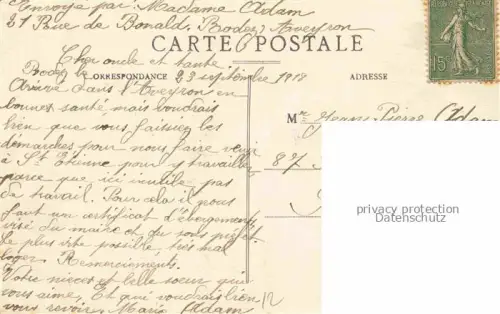 Envoye par Madame Adam
21 Rue de Bonald. Rodez, Aveyron
CARTE POSTALE
Cher oncle et tante
Rodez le 23 septembre 1918
CORRESPONDANCE
ADRESSE
15c
Arrivé dans l'Aveyron en
bonnes santé, mais voudrais
bien que vous faissiez les
démarches pour nous faire venir
à St Etienne pour y travailler
parce que ici inutile pas
de travail. Pour cela il nous
faut un certificat d'ébergements
visé du maire et du sous préfet.
Le plus vite possible, très mal
loger. Remerciements.
Votre nièces et belle sœur qui
vous aime, Et qui voudrais bien
vous revoir, Marie Adam
Mr Jean Pierre Adam
87
12
privacy protection
Datenschutz